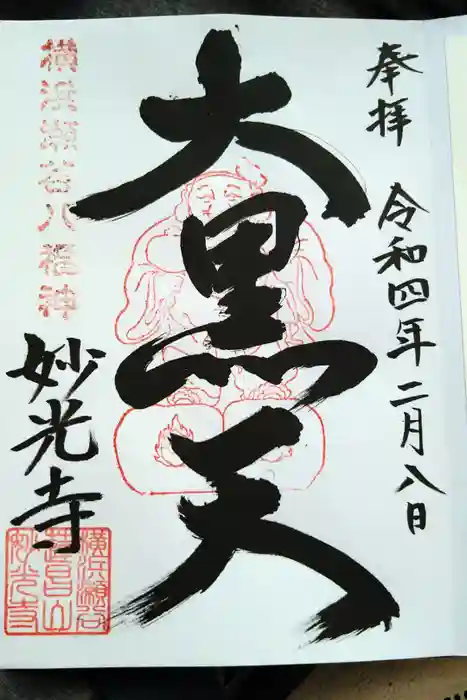 奉拝
令和四年二月八日
大黒天
横浜瀬谷八福神
妙光寺
横浜瀬谷
妙光寺